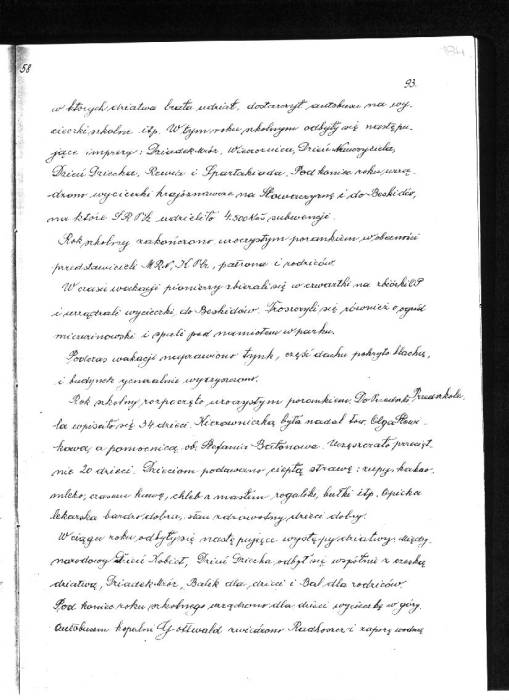 184
58
93.
w których dziatwa brała udział, dostarczył autobusu na wy-
cieczki szkolne itp. W tym roku szkolnym odbyły się następu-
jące imprezy: Dziadek-Mróz, Wieczornica, Dzień Nauczyciela,
Dzień Dziecka, Rewia i Spartakiada. Pod koniec roku urzą-
dzono wycieczki krajoznawcze na Słowaczyznę i do Beskidów,
na które SRPŠ udzieliło 4.500 Kčs subwencji.
Rok szkolny zakończono uroczystym porankiem w obecności
przedstawicieli MRN, K.P.Cz., patrona i rodziców.
W czasie wakacji pionierzy zbierali się w czwartki na zbiórki OP
i urządzali wycieczki do Beskidów. Troszczyli się również o ogród
miczurinowski i spali pod namiotem w parku.
Podczas wakacji naprawiono tynk, część dachu pokryto blachą,
i budynek generalnie wyczyszczono.
Rok szkolny rozpoczęto uroczystym porankiem. Do Przedszko-
la wpisało się 34 dzieci. Kierowniczką była nadal tow. Olga
kowa, a pomocnicą ob. Stefania Bartonowa. Uczęszczało przecięt-
nie 20 dzieci. Dzieciom podawano ciepłą strawę: zupy, kakao,
mleko, czasem kawę, chleb z masłem, rogaliki, bułki itp. Opieka
lekarska bardzo dobra, stan zdrowotny dzieci dobry.
W ciągu roku odbyły się następujące występy dziatwy: Między-
narodowy Dzień Kobiet, Dzień Dziecka, odbył się wspólnie z czeską
dziatwą, Dziadek-Mróz, Balek dla dzieci i Bal dla rodziców.
Pod koniec roku szkolnego urządzono dla dzieci wycieczkę w góry.
Autobusem kopalni Gottwald zwiedzono Radhoszcz i zaporę wodną